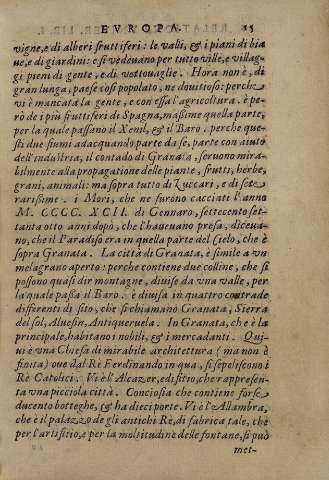 EVROPA. 15
vigne, e di alberi fruttiferi: le valli, & i piani di bia
ue, e di giardini: e si vedeuano per tutto ville, e villag-
gi pieni di gente, e di vettouaglie. Hora non è, di
gran lunga, paese così popolato, ne douitioso: perche
vi è mancata la gente, e con essa l'agricoltura. è pe-
rò de i più fruttiferi di Spagna, massime quella parte,
per la quale passano il Xenil, & il Baro. perche que-
sti due fiumi adacquando parte da se, parte con aiuto
dell'industria, il contado di Granata, seruono mira-
bilmente alla propagatione delle piante, frutti, herbe,
grani, animali: ma sopra tutto di Zuccari, e di sete
rarissime. i Mori, che ne furono cacciati l'anno
M. CCCC. XCII. di Gennaro, settecento set-
tanta otto anni dopò, che l'haueuano presa, diceua-
no, che il Paradiso era in quella parte del Cielo, che è
sopra Granata. La città di Granata, è simile a vn
melagrano aperto: perche contiene due colline, che si
possono quasi dir montagne, diuise da vna valle, per
la quale passa il Baro. è diuisa in quattro contrade
differenti di sito, che si chiamano Granata, Sierra
del sol, Aluesin, Antiqueruela. In Granata, che è la
principale, habitano i nobili, & i mercadanti. Qui-
ui è vna Chiesa di mirabile architettura (ma non è
finita) oue dal Rè Ferdinando in qua, si sepeliscono i
Rè Catolici. Vi è l'Alcazer, edifitio, che rappresen-
ta vna picciola città. Conciosia che contiene forse
ducento botteghe, & ha dieci porte. Vi è l'Allambra,
che è il palazzo de gli antichi Rè, di fabrica tale, che
per l'artifitio, e per la moltitudine delle fontane, si può
met-